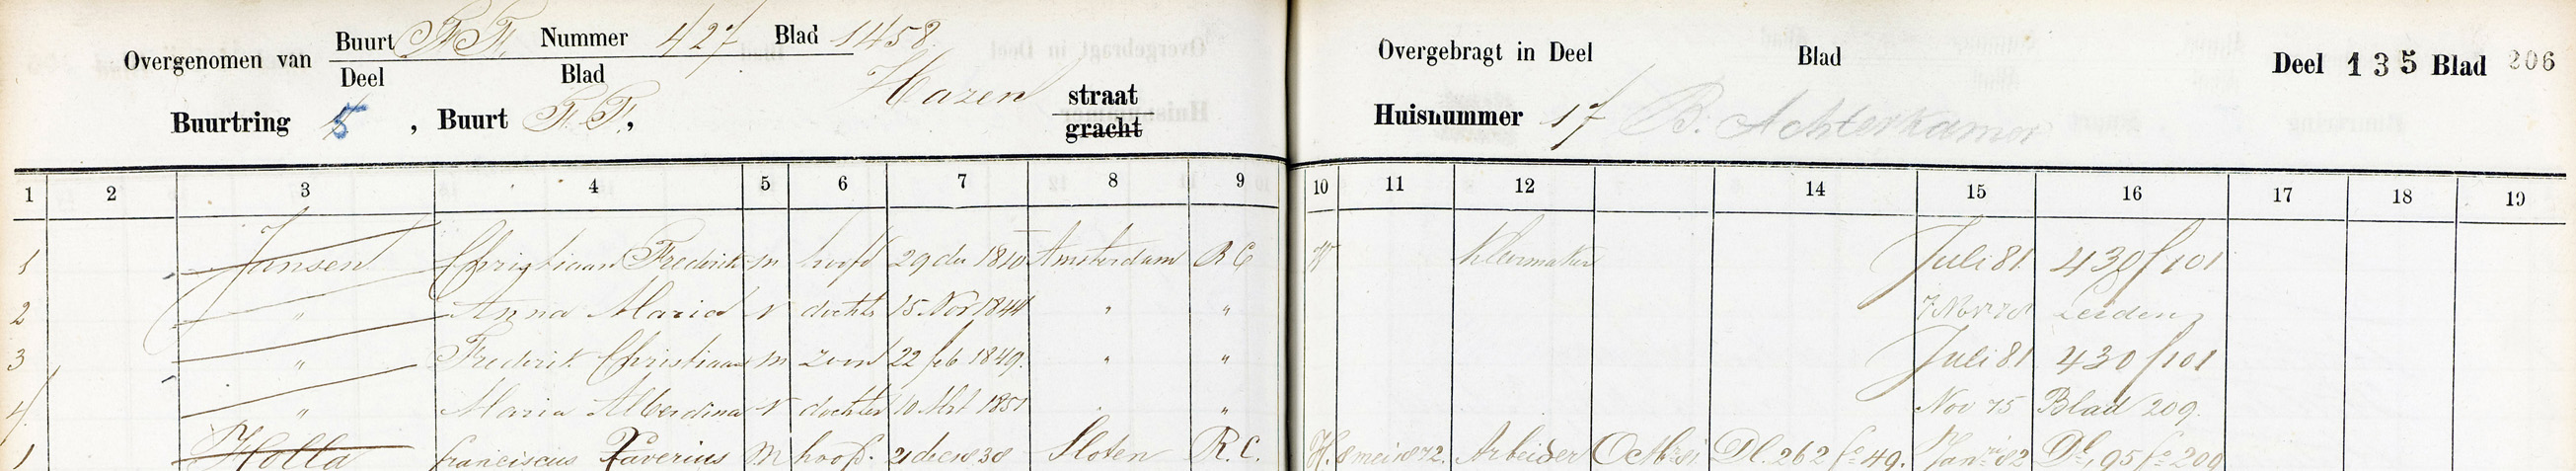 Overgenomen van Buurt FF. Nummer 427 Blad 1458.
Deel Blad
Buurtring 5, Buurt F.F., Hazen straat
gracht
Overgebragt in Deel Blad Deel 135 Blad 206
Huisnummer 17 B. Achterkamer
1 2 3 4 5 6 7 8 9 10 11 12 14 15 16 17 18 19
1 Jansen Christiaan Frederik m hoofd 29 dec 1810 Amsterdam RC W Kleermaker Juli 81 430 f 101
2 " Anna Maria v dochter 15 Nov 1844 " " 7 Nov 78 Leiden
3 " Frederik Christiaan m zoon 22 feb 1849. " " Juli 81 430 f 101
4 " Maria Alberdina v dochter 10 Mrt 1851 " " Nov 75 Blad 209.
1 Holla Franciscus Xaverius M hoof. 21 dec 1838 Sloten R.C. H. 8 mei 1872. Arbeider Octbr 81. Dl. 262 fo 49. Janri 82 Dl. 95 fo 209